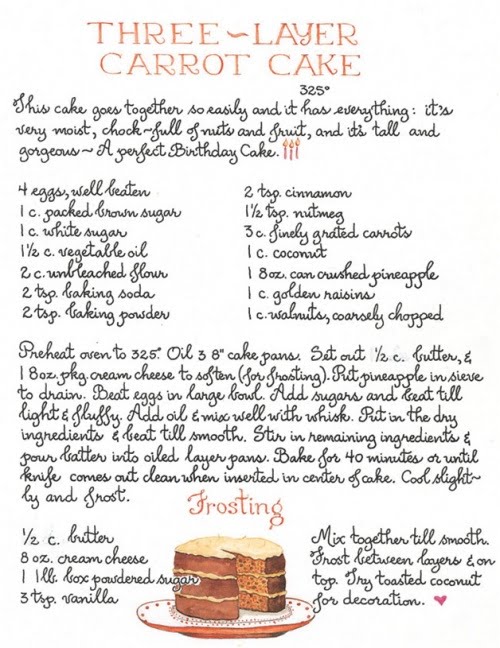 THREE~LAYER
CARROT CAKE
325°
This cake goes together so easily and it has everything: it's
very moist, chock~full of nuts and fruit, and it's tall and
gorgeous~ A perfect Birthday Cake.
4 eggs, well beaten
1 c. packed brown sugar
1 c. white sugar
1½ c. vegetable oil
2 c. unbleached flour
2 tsp. baking soda
2 tsp. baking powder
2 tsp. cinnamon
1½ tsp. nutmeg
3 c. finely grated carrots
1 c. coconut
1 8oz. can crushed pineapple
1 c. golden raisins
1 c. walnuts, coarsely chopped
Preheat oven to 325°. Oil 3 8" cake pans. Set out ½ c. butter, &
1 8oz. pkg. cream cheese to soften (for frosting). Put pineapple in sieve
to drain. Beat eggs in large bowl. Add sugars and beat till
light & fluffy. Add oil & mix well with whisk. Put in the dry
ingredients & beat till smooth. Stir in remaining ingredients &
pour batter into oiled layer pans. Bake for 40 minutes or until
knife comes out clean when inserted in center of cake. Cool slight~
ly and frost.
Frosting
½ c. butter
8 oz. cream cheese
1 1lb. box powdered sugar
3 tsp. vanilla
Mix together till smooth.
Frost between layers & on
top. Try toasted coconut
for decoration. ♥